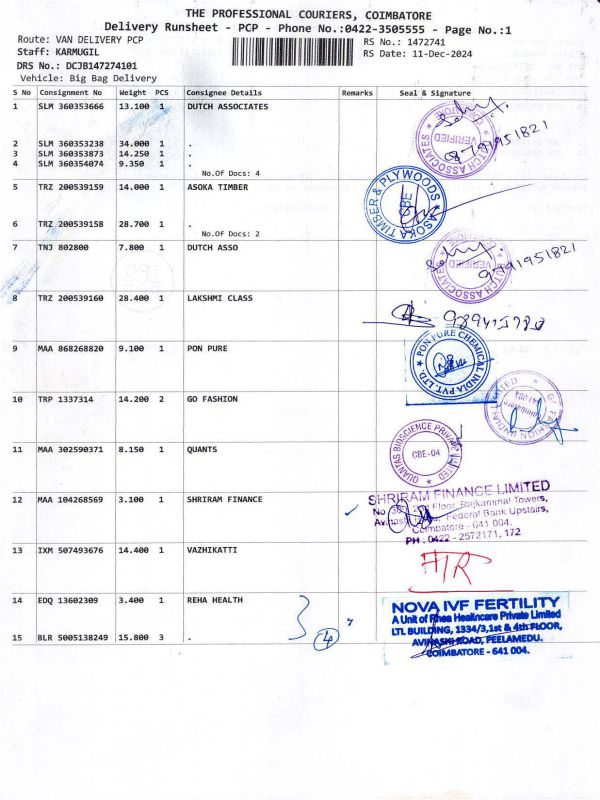 THE PROFESSIONAL COURIERS, COIMBATORE
Delivery Runsheet - PCP - Phone No.:0422-3505555 - Page No.:1
Route: VAN DELIVERY PCP
RS No.: 1472741
Staff: KARMUGIL
RS Date: 11-Dec-2024
DRS No.: DCJB147274101
Vehicle: Big Bag Delivery
S No Consignment No Weight PCS Consignee Details Remarks Seal & Signature
1 SLM 360353666 13.100 1 DUTCH ASSOCIATES
VERIFIED
9791951821
2 SLM 360353238 34.000 1 .
3 SLM 360353873 14.250 1 .
4 SLM 360354074 9.350 1 .
No.Of Docs: 4
5 TRZ 200539159 14.000 1 ASOKA TIMBER
ASOKA TIMBER & PLYWOODS
CBE
6 TRZ 200539158 28.700 1 .
No.Of Docs: 2
7 TNJ 802800 7.800 1 DUTCH ASSO
VERIFIED
9791951821
8 TRZ 200539160 28.400 1 LAKSHMI CLASS
9 MAA 868268820 9.100 1 PON PURE
PON PURE CHEMICAL INDIA PVT. LTD.
10 TRP 1337314 14.200 2 GO FASHION
11 MAA 302590371 8.150 1 QUANTS
CBE-04
12 MAA 104268569 3.100 1 SHRIRAM FINANCE
SHRIRAM FINANCE LIMITED
Floor, Rajkammal Towers,
Federal Bank Upstairs,
Coimbatore - 641 004.
PH : 0422 - 2572171, 172
13 IXM 507493676 14.400 1 VAZHIKATTI
14 EDQ 13602309 3.400 1 REHA HEALTH
15 BLR 5005138249 15.800 3 .
4
NOVA IVF FERTILITY
A Unit of Rhea Healthcare Private Limited
LTL BUILDING, 1334/3,1st & 4th FLOOR,
AVINASHI ROAD, PEELAMEDU.
COIMBATORE - 641 004.